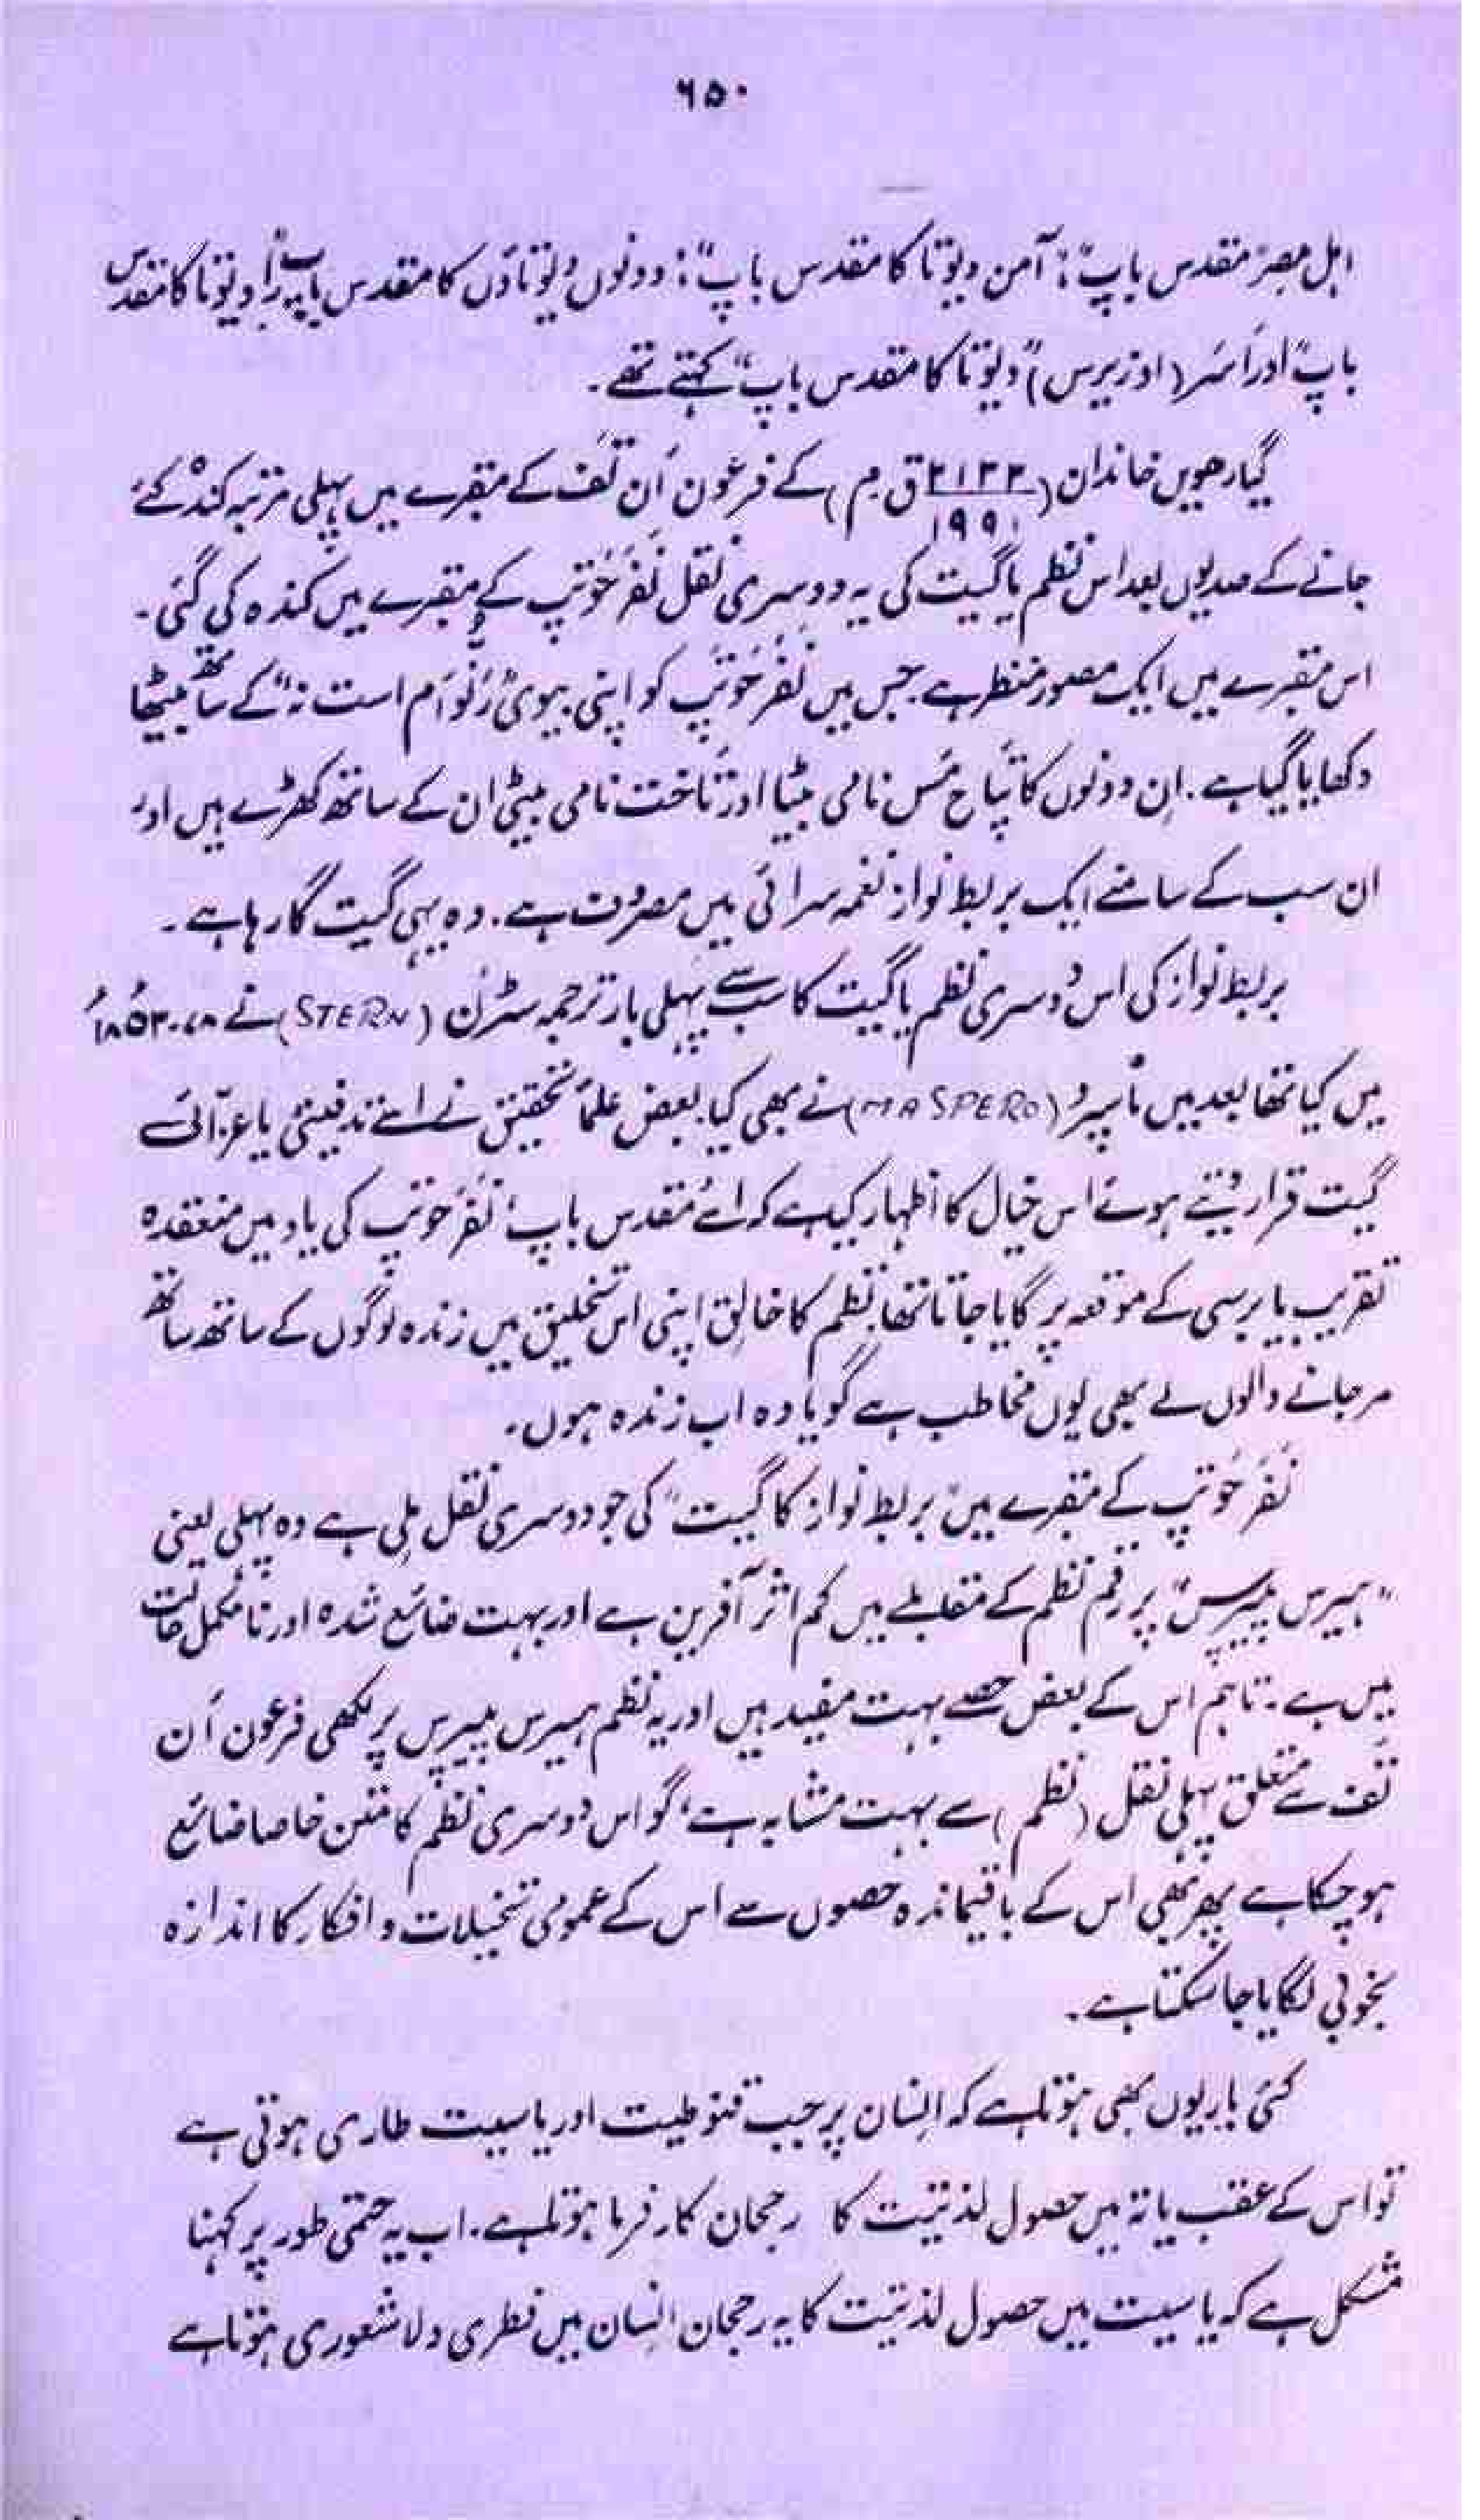 ۶۵۰
اہل مصر "مقدس باپ"؛ آمن دیوتا کا مقدس باپ"؛ دونوں دیوتاؤں کا مقدس باپ" را دیوتا کا مقدس
باپ" اور اسر (اوزیرس) "دیوتا کا مقدس باپ" کہتے تھے۔
گیارھویں خاندان (۲۱۳۳/۱۹۹۱ ق م) کے فرعون اَن تف کے مقبرے میں پہلی مرتبہ کندہ کئے
جانے کے صدیوں بعد اس نظم یا گیت کی یہ دوسری نقل نفر حوتپ کے مقبرے میں کندہ کی گئی۔
اس مقبرے میں ایک مصور منظر ہے جس میں نفر حوتپ کو اپنی بیوی "رنوام است نہ" کے ساتھ بیٹھا
دکھایا گیا ہے۔ ان دونوں کا پتاح مس نامی بیٹا اور تاخت نامی بیٹی ان کے ساتھ کھڑے ہیں اور
ان سب کے سامنے ایک بربط نواز نغمہ سرائی میں مصروف ہے۔ وہ یہی گیت گا رہا ہے۔
بربط نواز کی اس دوسری نظم یا گیت کا سب سے پہلی بار ترجمہ سٹرن (STERN) نے
میں کیا تھا بعد میں ماسپرو (MASPERO) نے بھی کیا۔ بعض علمائے تحقیق نے اسے تدفینی یا عزائی
گیت قرار دیتے ہوئے اس خیال کا اظہار کیا ہے کہ اسے مقدس باپ، نفر حوتپ کی یاد میں منعقدہ
تقریب یا برسی کے موقعہ پر گایا جاتا تھا۔ نظم کا خالق اپنی اس تخلیق میں زندہ لوگوں کے ساتھ ساتھ
مر جانے والوں سے بھی یوں مخاطب ہے گویا وہ اب زندہ ہوں۔
نفر حوتپ کے مقبرے میں "بربط نواز کا گیت" کی جو دوسری نقل ملی ہے وہ پہلی یعنی
"ہیرس پیپرس" پر رقم نظم کے مقابلے میں کم اثر آفرین ہے اور بہت ضائع شدہ اور نامکمل حالت
میں ہے۔ تاہم اس کے بعض حصے بہت مفید ہیں اور یہ نظم ہیرس پیپرس پر لکھی فرعون اَن
تف سے متعلق پہلی نقل (نظم) سے بہت مشابہ ہے، گو اس دوسری نظم کا متن خاصا ضائع
ہو چکا ہے پھر بھی اس کے باقیماندہ حصوں سے اس کے عمومی تخیلات و افکار کا اندازہ
بخوبی لگایا جا سکتا ہے۔
کئی بار یوں بھی ہوتا ہے کہ انسان پر جب قنوطیت اور یاسیت طاری ہوتی ہے
تو اس کے عقب یا تہ میں حصول لذتیت کا رجحان کار فرما ہوتا ہے۔ اب یہ حتمی طور پر کہنا
مشکل ہے کہ یاسیت میں حصول لذتیت کا یہ رجحان انسان میں فطری و لاشعوری ہوتا ہے